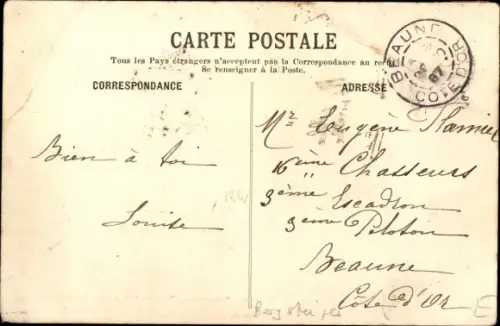 CARTE POSTALE
Tous les Pays étrangers n'acceptent pas la Correspondance au
Se renseigner à la Poste.
CORRESPONDANCE
ADRESSE
BEAUNE
07
COTE D'OR
Bien à toi
Louise
Mr Eugène
16ème Chasseurs
3ème Escadron
3ème Peloton
Beaune
Côte d'Or